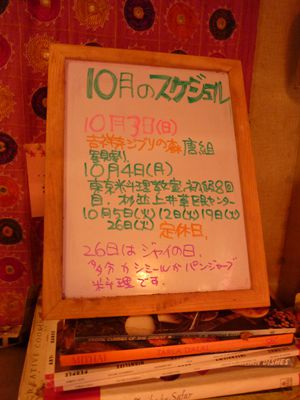 10月のスケジュル
10月3日(日)
吉祥寺ジブリの森 唐組
10月4日(月)
東京料理教室、初級8回
目、杉並上井草区民センター
10月5日(火) 12日(火) 19日(火)
26日(火) 定休日。
26日はジャイの日。
多分カシミールかパンジャーブ
料理です。
CREATIVE
MITHAI
TARLA DALAL
PEOPLE
DISHES
Safar